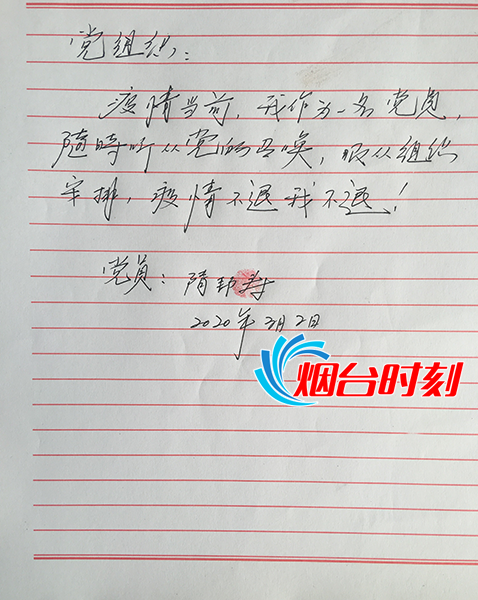 党组织：
疫情当前，我作为一名党员，
随时听从党的召唤，服从组织
安排，疫情不退我不退！
党员：隋邦寿
2020年2月2日
烟台时刻